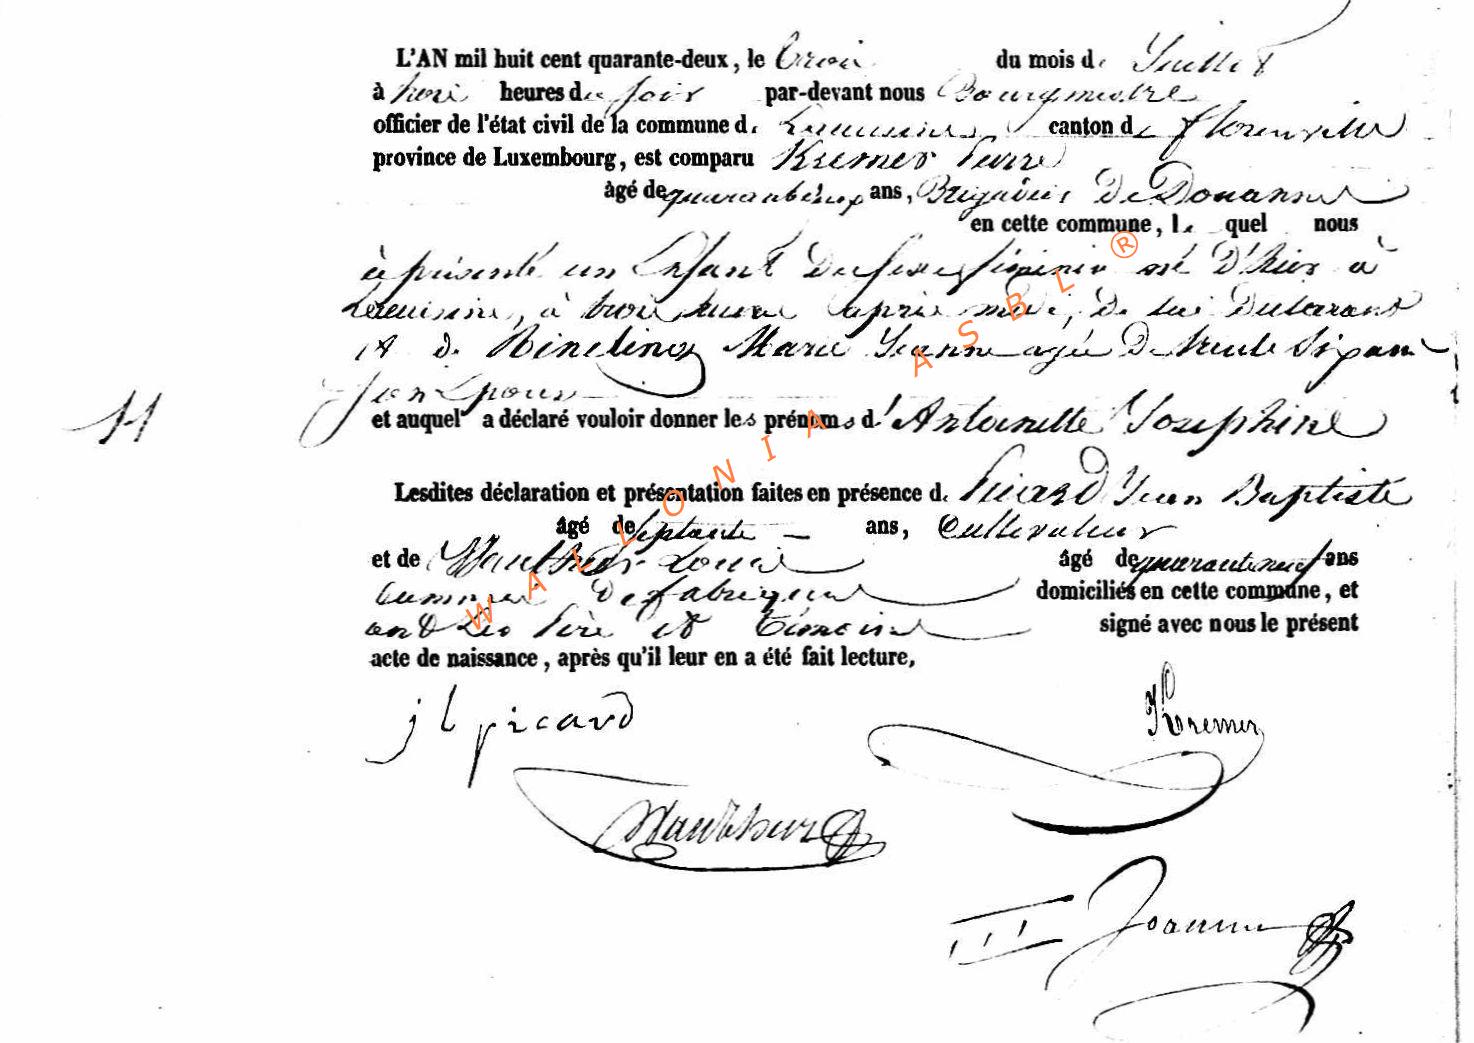 L'AN mil huit cent quarante-deux, le trois du mois de Juillet
à trois heures du soir par-devant nous Bourgmestre
officier de l'état civil de la commune de Lacuisine canton de florenville
province de Luxembourg, est comparu Kremer Pierre
âgé de quarante cinq ans, Brigadier De Douanne
en cette commune, le quel nous
à présenté un Enfant Du sexe féminin né D'hier à
Lacuisine, à trois heure après midi, De lui Déclarant
et de Rineling Marie Jeanne agée De trente Six ans
Son Epouse
11
et auquel a déclaré vouloir donner les prénoms d'Antoinette Josephine
Lesdites déclaration et présentation faites en présence de Picard Jean Baptiste
âgé de septante ans, Cultivateur
et de Wauthier Louis âgé de quarante neuf ans
De fabrique domiciliés en cette commune, et
ont Les Père et Témoins signé avec nous le présent
acte de naissance, après qu'il leur en a été fait lecture,
j b picard
Kremer
Wauthier
Joanne
WALLONIA ASBL ®